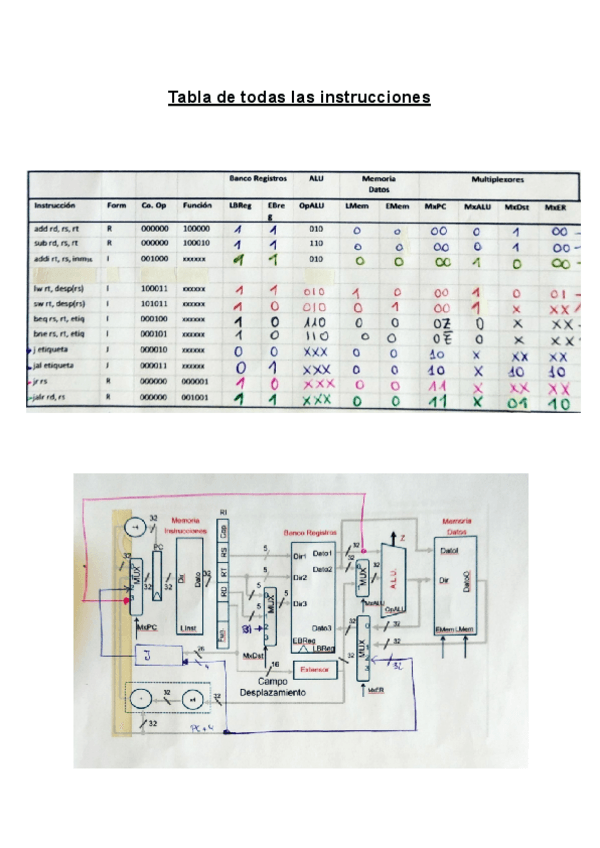 Tabla de todas las instrucciones
Banco Registros ALU Memoria Datos Multiplexores
Instrucción Form Co. Op Función LBReg EBreg OpALU LMem EMem MxPC MxALU MxDst MxER
add rd, rs, rt R 000000 100000 1 1 010 0 0 00 0 1 00
sub rd, rs, rt R 000000 100010 1 1 110 0 0 00 0 1 00
addi rt, rs, inm I 001000 xxxxxx 1 1 010 0 0 00 1 0 00
lw rt, desp(rs) I 100011 xxxxxx 1 1 010 1 0 00 1 0 01
sw rt, desp(rs) I 101011 xxxxxx 1 0 010 0 1 00 1 x xx
beq rs, rt, etiq I 000100 xxxxxx 1 0 110 0 0 0Z 0 x xx
bne rs, rt, etiq I 000101 xxxxxx 1 0 110 0 0 0Z̅ 0 x xx
j etiqueta J 000010 xxxxxx 0 0 xxx 0 0 10 x xx xx
jal etiqueta J 000011 xxxxxx 0 1 xxx 0 0 10 x 10 10
jr rs R 000000 000001 1 0 xxx 0 0 11 x xx xx
jalr rd, rs R 000000 001001 1 1 xxx 0 0 11 x 01 10
+4
32
PC
Memoria
Instrucciones
Dir
Dato
LInst
RI
Cop
RS
RT
RD
Fun
Banco Registros
Dir1
Dir2
Dir3
Dato1
Dato2
Dato3
EBReg
LBReg
Z
A.L.U.
OpALU
Memoria
Datos
DatoI
Dir
DatoO
EMem LMem
MUX
MxPC
MUX
MxDst
MUX
MxALU
MUX
0
1
2
3
MxER
J
26
4
16
Extensor
Campo
Desplazamiento
+
×4
32
32
32
PC+4